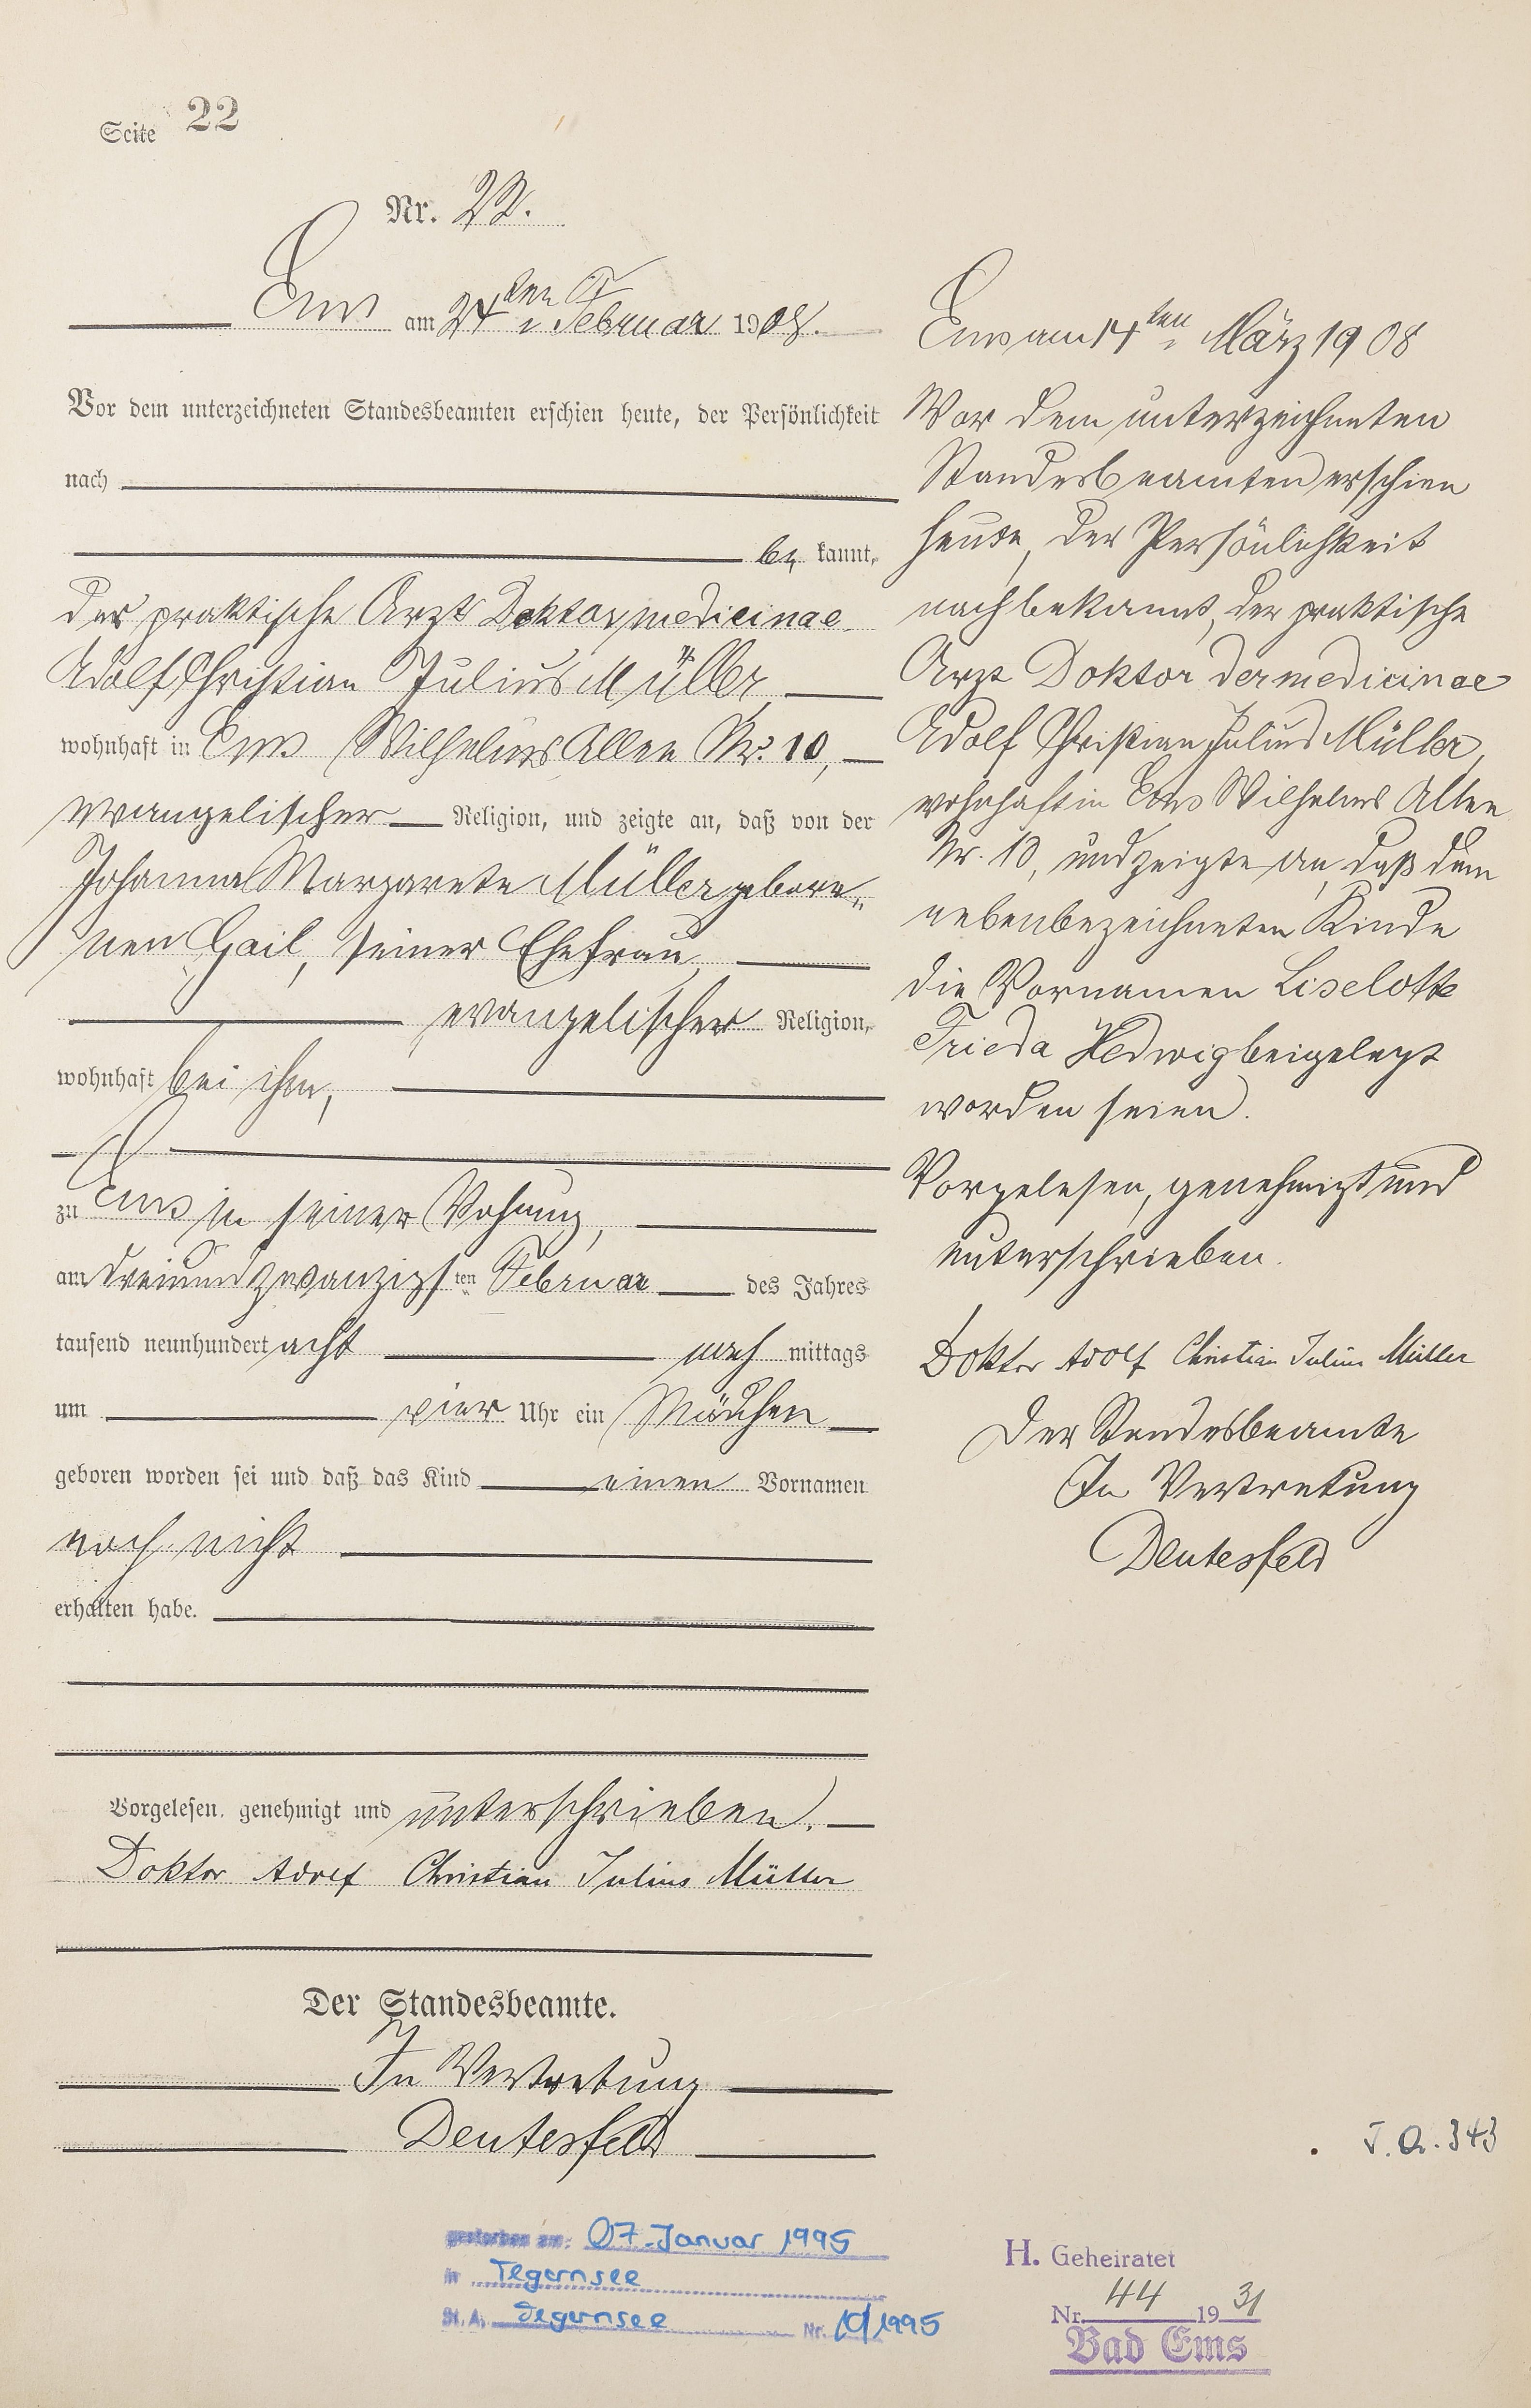 Seite 22
Nr. 22.
Ems am 24ten Februar 1908.
Vor dem unterzeichneten Standesbeamten erschien heute, der Persönlichkeit
nach
be kannt,
der praktische Arzt Doktor medicinae
Adolf Christian Julius Müller,
wohnhaft in Ems Wilhelms Allee Nr. 10,
evangelischer Religion, und zeigte an, daß von der
Johanna Margarete Müller gebore„
nen Gail, seiner Ehefrau,
evangelischer Religion,
wohnhaft bei ihm,
zu Ems in seiner Wohnung,
am dreiundzwanzigsten Februar des Jahres
tausend neunhundert acht nach mittags
um vier Uhr ein Mädchen
geboren worden sei und daß das Kind einen Vornamen
noch nicht
erhalten habe.
Vorgelesen, genehmigt und unterschrieben.
Doktor Adolf Christian Julius Müller
Der Standesbeamte.
In Vertretung
Deutesfeld
gestorben am: 07. Januar 1995
in Tegernsee
St. A. Tegernsee Nr. 10/1995
Ems am 14ten März 1908
Vor dem unterzeichneten
Standesbeamten erschien
heute, der Persönlichkeit
nach bekannt, der praktische
Arzt Doktor der medicinae
Adolf Christian Julius Müller,
wohnhaft in Ems Wilhelms Allee
Nr. 10, und zeigte an, daß dem
nebenbezeichneten Kinde
die Vornamen Liselotte
Frieda Hedwig beigelegt
worden seien.
Vorgelesen, genehmigt und
unterschrieben.
Doktor Adolf Christian Julius Müller
Der Standesbeamte
In Vertretung
Deutesfeld
J. A. 343
H. Geheiratet
Nr. 44 1931
Bad Ems